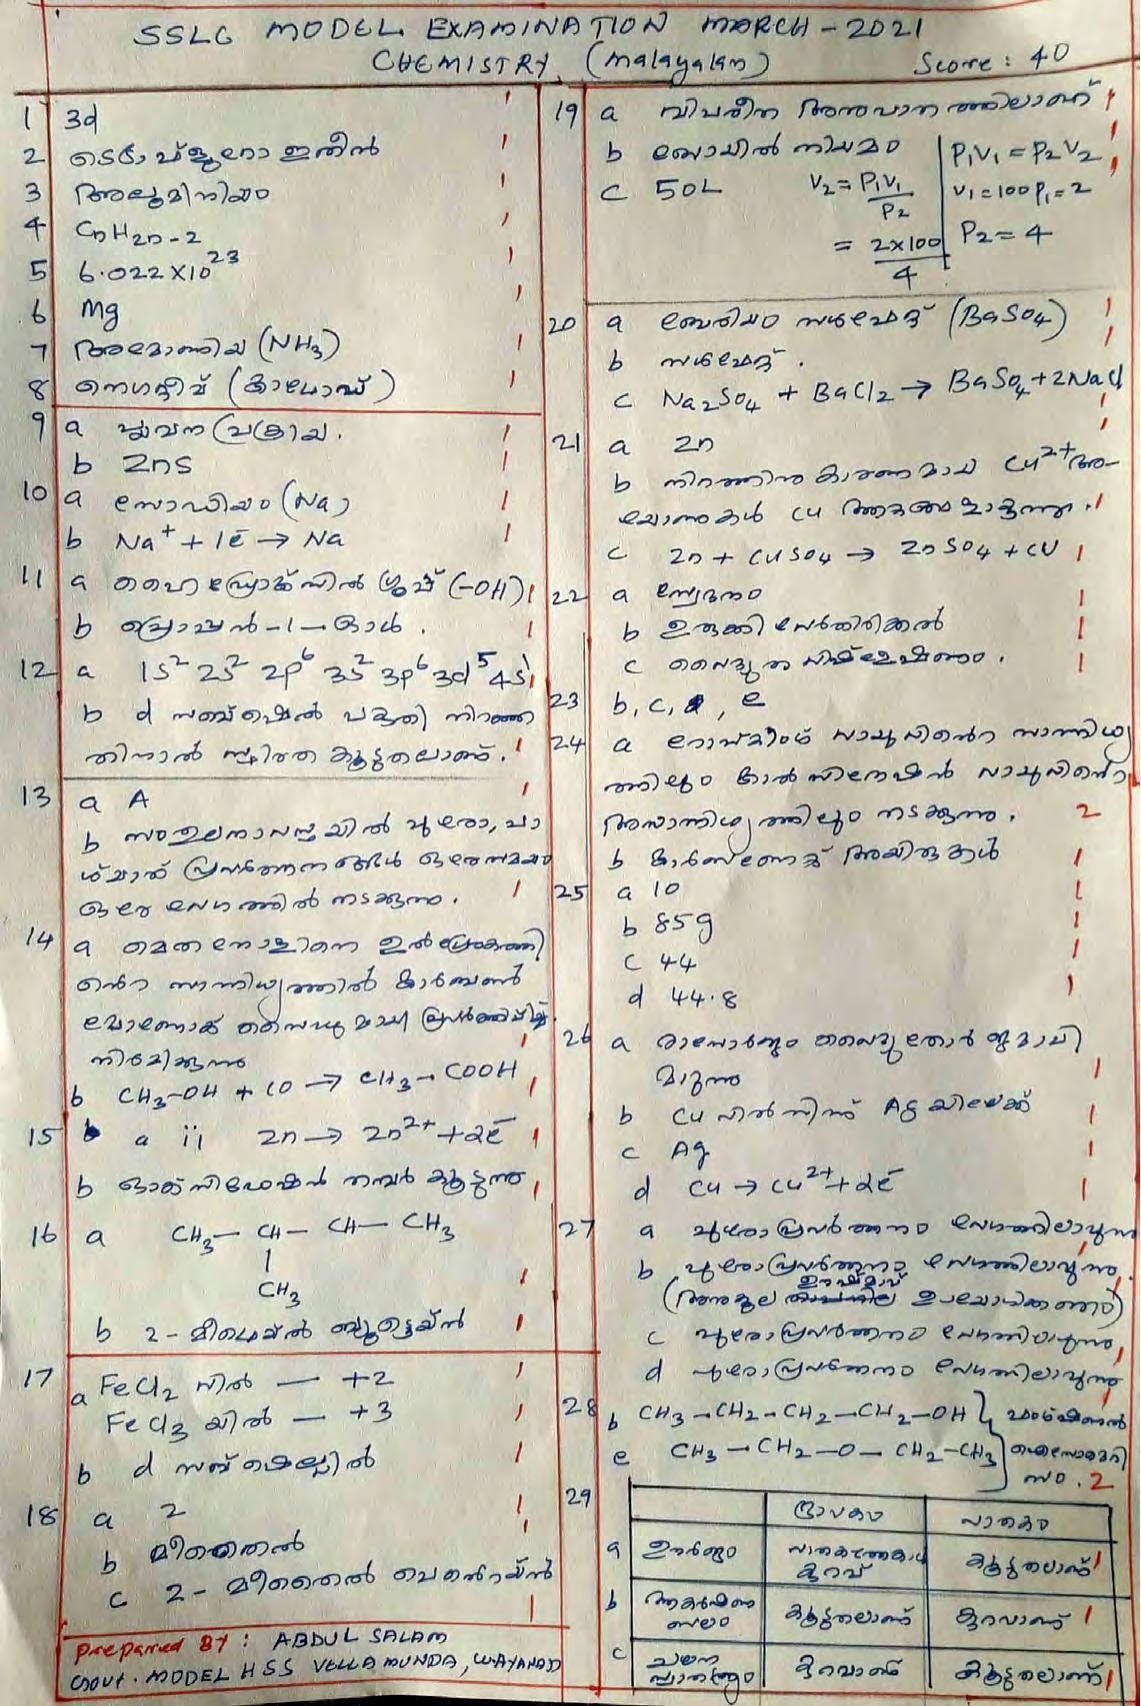 SSLC MODEL EXAMINATION MARCH - 2021
CHEMISTRY (Malayalam) Score: 40
1 3d
2 ടെട്രാഫ്ളൂറോ ഇതീൻ
3 അലൂമിനിയം
4 CnH2n-2
5 6.022 X 10^23
6 Mg
7 അമോണിയ (NH3)
8 നെഗറ്റീവ് (കാഥോഡ്)
9 a പ്ലവന പ്രക്രിയ.
b ZnS
10 a സോഡിയം (Na)
b Na+ + 1e- → Na
11 a ഹൈഡ്രോക്സിൽ ഗ്രൂപ്പ് (-OH)
b പ്രൊപ്പൻ-1-ഓൾ.
12 a 1s2 2s2 2p6 3s2 3p6 3d5 4s1
b d സബ്ഷെൽ പകുതി നിറഞ്ഞ
തിനാൽ സ്ഥിരത കൂടുതലാണ്.
13 a A
b സംതുലനാവസ്ഥയിൽ പുരോ, പാ
ശ്ചാത് പ്രവർത്തനങ്ങൾ ഒരേസമയം
ഒരേ വേഗത്തിൽ നടക്കുന്നു.
14 a മെതനോളിനെ ഉൽപ്രേരകത്തി
ന്റെ സാന്നിധ്യത്തിൽ കാർബൺ
മോണോക്സൈഡുമായി പ്രവർത്തിപ്പിച്ച്
നിർമിക്കുന്നു
b CH3-OH + CO → CH3-COOH
15 a ii Zn → Zn2+ + 2e-
b ഓക്സിഡേഷൻ നമ്പർ കൂടുന്നു
16 a CH3 - CH - CH - CH3
|
CH3
b 2 - മീഥൈൽ ബ്യൂട്ടെയ്ൻ
17 a FeCl2 വിൽ — +2
FeCl3 യിൽ — +3
b d സബ്ഷെല്ലിൽ
18 a 2
b മീതൈൽ
c 2 - മീതൈൽ പെന്റെയ്ൻ
Prepared BY : ABDUL SALAM
GOVT. MODEL HSS VELLAMUNDA, WAYANAD
19 a വിപരീത അനുപാതത്തിലാണ്
b ബോയിൽ നിയമം P1V1 = P2V2
c 50L V2 = P1V1 / P2 V1 = 100 P1 = 2
= 2x100 / 4 P2 = 4
20 a ബേരിയം സൾഫേറ്റ് (BaSO4)
b സൾഫേറ്റ്.
c Na2SO4 + BaCl2 → BaSO4 + 2NaCl
21 a Zn
b നിറത്തിനു കാരണമായ Cu2+ അ-
യോണുകൾ Cu ആറ്റങ്ങളാകുന്നു.
c Zn + CuSO4 → ZnSO4 + Cu
22 a സ്വേദനം
b ഉരുക്കി വേർതിരിക്കൽ
c വൈദ്യുത വിശ്ലേഷണം.
23 b, c, e
24 a റോസ്റ്റിംഗ് വായുവിന്റെ സാന്നിധ്യ
ത്തിലും കാൽസിനേഷൻ വായുവിന്റെ
അസാന്നിധ്യത്തിലും നടക്കുന്നു. 2
b കാർബണേറ്റ് അയിരുകൾ
25 a 10
b 85g
c 44
d 44.8
26 a രാസോർജം വൈദ്യുതോർജമായി
മാറുന്നു
b Cu വിൽ നിന്ന് Ag യിലേക്ക്
c Ag
d Cu → Cu2+ + 2e-
27 a പുരോപ്രവർത്തനം വേഗത്തിലാവുന്നു
b പുരോപ്രവർത്തനം വേഗത്തിലാവുന്നു.
ഊഷ്മാവ്
(അനുകൂല താപനില ഉപയോഗിക്കണം)
c പുരോപ്രവർത്തനം വേഗത്തിലാവുന്നു
d പുരോപ്രവർത്തനം വേഗത്തിലാവുന്നു
28 b CH3 - CH2 - CH2 - CH2 - OH ഫങ്ഷണൽ
e CH3 - CH2 - O - CH2 - CH3 ഐസോമെറി
സം. 2
29 ദ്രാവകം വാതകം
a ഊർജം വാതകത്തേക്കാൾ കുറവ് കൂടുതലാണ്
b ആകർഷണ ബലം കൂടുതലാണ് കുറവാണ്
c ചലന സ്വാതന്ത്ര്യം കുറവാണ് കൂടുതലാണ്